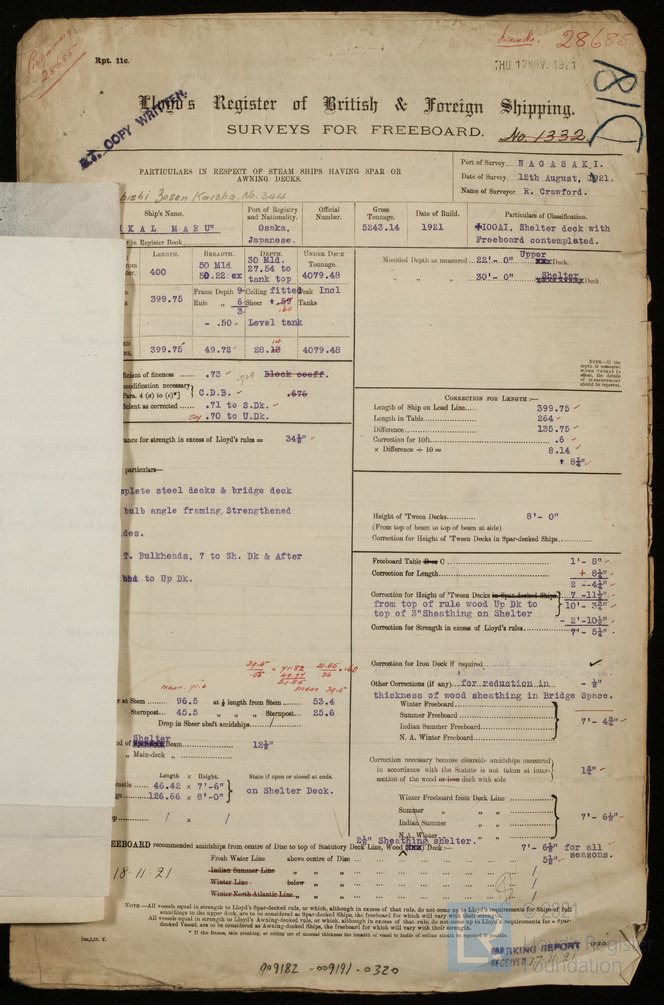 Rpt. 11c.
28685
28685
THU 17 NOV. 1921
D18
Lloyd's Register of British & Foreign Shipping.
SURVEYS FOR FREEBOARD.
No. 1332
COPY WRITTEN.
PARTICULARS IN RESPECT OF STEAM SHIPS HAVING SPAR OR
AWNING DECKS.
Port of Survey NAGASAKI.
Date of Survey 12th August, 1921.
Name of Surveyor R. Crawford.
bishi Zosen Kaisha, No. 344
Ship's Name.
Port of Registry and Nationality.
Official Number.
Gross Tonnage.
Date of Build.
Particulars of Classification.
KAI MARU"
Osaka, Japanese.
5243.14
1921
✠100AI, Shelter deck with
Freeboard contemplated.
in Register Book
LENGTH.
BREADTH.
DEPTH.
UNDER DECK TONNAGE.
400
50 Mld
50.22 ex
30 Mld.
27.54 to
tank top
4079.48
399.75
Frame Depth 9
Rule " 6
3
Ceiling fitted
Sheer + .59
.60
Peak Incl
Tanks
- .50
Level tank
399.75
49.72
28.13
4079.48
Moulded Depth as measured 22'- 0" Upper Deck.
" " " 30'- 0" Shelter Deck.
NOTE.—If the depth is measured when vessel is afloat, the details of measurement should be reported.
icient of fineness .73
.729
Block coeff.
modification necessary
Para. 4 (a) to (e)*]
C.D.B.
.676
icient as corrected .71 to S.Dk.
say .70 to U.Dk.
ance for strength in excess of Lloyd's rules = 34½"
CORRECTION FOR LENGTH:—
Length of Ship on Load Line 399.75
Length in Table 264
Difference 135.75
Correction for 10ft. .6
× Difference ÷ 10 = 8.14
+ 8¼"
particulars—
plete steel decks & bridge deck
bulb angle framing, Strengthened
des.
T. Bulkheads, 7 to Sh. Dk & After
bhd to Up Dk.
Height of 'Tween Decks 8'- 0"
(From top of beam to top of beam at side)
Correction for Height of 'Tween Decks in Spar-decked Ships
Freeboard Table C 1'- 8"
Correction for Length + 8¼"
2 -4¼"
Correction for Height of 'Tween Decks in Spar-decked Ships 7 -11½"
from top of rule wood Up Dk to
top of 3"Sheathing on Shelter
10'- 3¾"
- 2'-10½"
Correction for Strength in excess of Lloyd's rules 7'- 5¼"
Correction for Iron Deck if required
Other Corrections (if any) for reduction in - ½"
thickness of wood sheathing in Bridge Space.
Winter Freeboard
Summer Freeboard
Indian Summer Freeboard
N. A. Winter Freeboard
7'- 4¾"
r at Stem 96.5 at ⅛ length from Stem 53.4
Sternpost 45.5 " " " Sternpost 25.6
Drop in Sheer abaft amidships
Shelter
Beam 12½"
" Main-deck "
Length × Height.
State if open or closed at ends.
castle 46.42 × 7'-6"
ge 126.66 × 8'-0"
on Shelter Deck.
Correction necessary because clearside amidships measured
in accordance with the Statute is not taken at inter-
section of the wood or iron deck with side
1¾"
Winter Freeboard from Deck Line
Summer " "
Indian Summer " "
N.A. Winter " "
7'- 6½"
2½" Sheathing shelter.
EEBOARD recommended amidships from centre of Disc to top of Statutory Deck Line, Wood Deck:— 7'- 6½" for all
seasons.
Fresh Water Line above centre of Disc 5½"
Indian Summer Line " "
Winter Line below "
Winter North Atlantic Line " "
18·11·21
NOTE.—All vessels equal in strength to Lloyd's Spar-decked rule, or which, although in excess of that rule, do not come up to Lloyd's requirements for Ships of full
scantlings to the upper deck, are to be considered as Spar-decked Ships, the freeboard for which will vary with their strength.
All vessels equal in strength to Lloyd's Awning-decked rule, or which, although in excess of that rule, do not come up to Lloyd's requirements for a spar-
decked Vessel, are to be considered as Awning-decked Ships, the freeboard for which will vary with their strength.
MARKING REPORT
RECEIVED 17.11.21
© 2021
Lloyd's Register
Foundation
009182 - 009191 - 0320